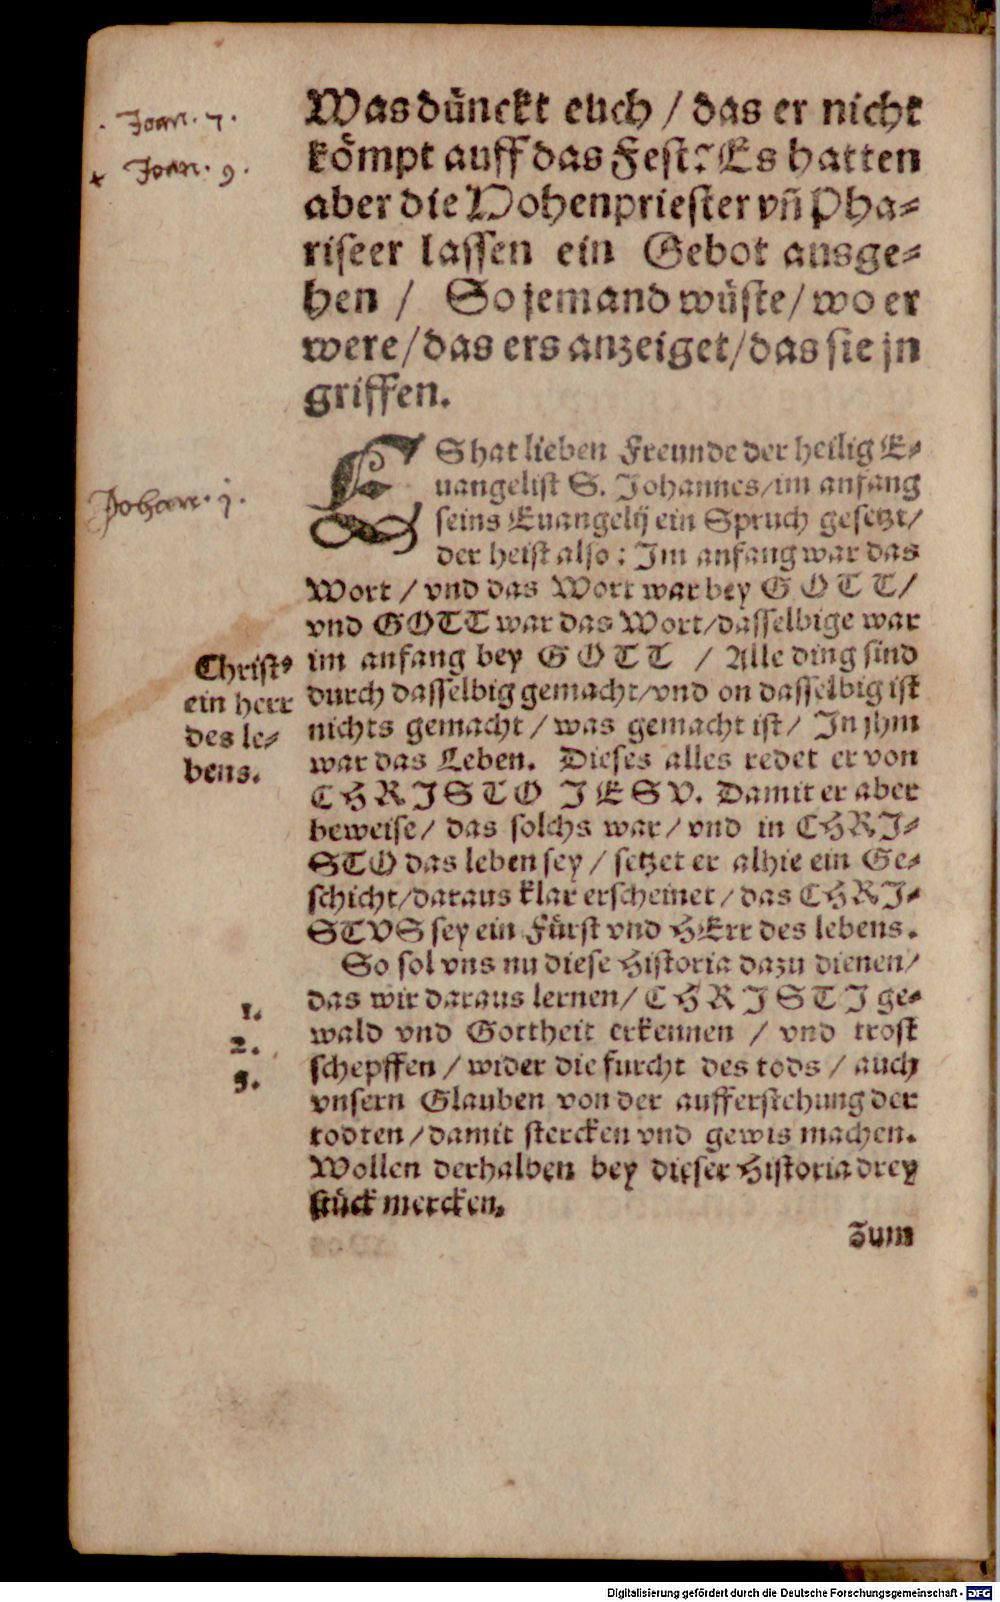 Was dünckt euch / das er nicht
kömpt auff das Fest? Es hatten
aber die Hohenpriester vñ Pha-
riseer lassen ein Gebot ausge-
hen / So jemand wüste / wo er
were / das ers anzeiget / das sie jn
griffen.
Joan. 7.
+ Joan. 9.
ES hat lieben Freunde der heilig E-
uangelist S. Johannes / im anfang
seins Euangelij ein Spruch gesetzt /
der heist also : Im anfang war das
Wort / vnd das Wort war bey GOTT /
vnd GOTT war das Wort / dasselbige war
im anfang bey GOTT / Alle ding sind
durch dasselbig gemacht / vnd on dasselbig ist
nichts gemacht / was gemacht ist / In jhm
war das Leben. Dieses alles redet er von
CHRISTO JESV. Damit er aber
beweise / das solchs war / vnd in CHRI-
STO das leben sey / setzet er alhie ein Ge-
schicht / daraus klar erscheinet / das CHRI-
STVS sey ein Fürst vnd HErr des lebens.
Johan. j.
Christꝰ
ein herr
des le-
bens.
So sol vns nu diese Historia dazu dienen /
das wir daraus lernen / CHRISTI ge-
wald vnd Gottheit erkennen / vnd trost
schepffen / wider die furcht des tods / auch
vnsern Glauben von der aufferstehung der
todten / damit stercken vnd gewis machen.
Wollen derhalben bey dieser Historia drey
stück mercken.
1.
2.
3.
Zum
Digitalisierung gefördert durch die Deutsche Forschungsgemeinschaft - DFG